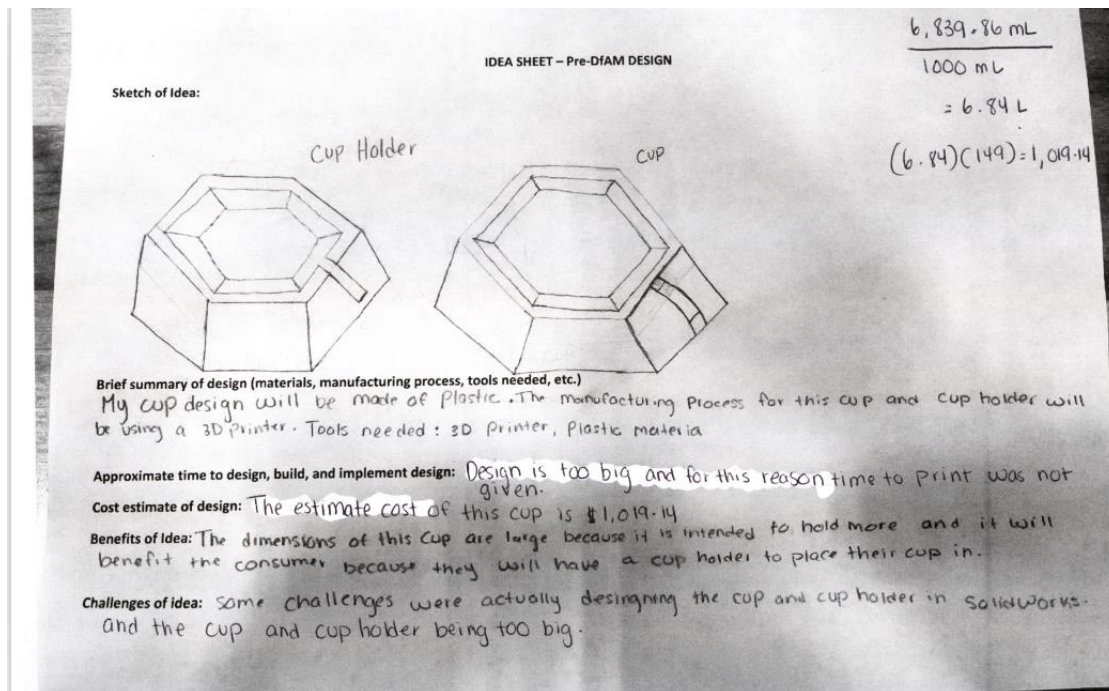 6,839.86 mL
1000 mL
= 6.84 L
(6.84)(149)=1,019.14
IDEA SHEET – Pre-DfAM DESIGN
Sketch of Idea:
Cup Holder
Cup
Brief summary of design (materials, manufacturing process, tools needed, etc.)
My cup design will be made of Plastic. The manufacturing Process for this cup and cup holder will
be using a 3D Printer. Tools needed: 3D Printer, Plastic materia
Approximate time to design, build, and implement design: Design is too big and for this reason time to print was not
given.
Cost estimate of design: The estimate cost of this cup is $1,019.14
Benefits of Idea: The dimensions of this Cup are large because it is intended to hold more and it will
benefit the consumer because they will have a cup holder to place their cup in.
Challenges of idea: Some challenges were actually desingning the cup and cup holder in Solidworks.
and the cup and cup holder being too big.